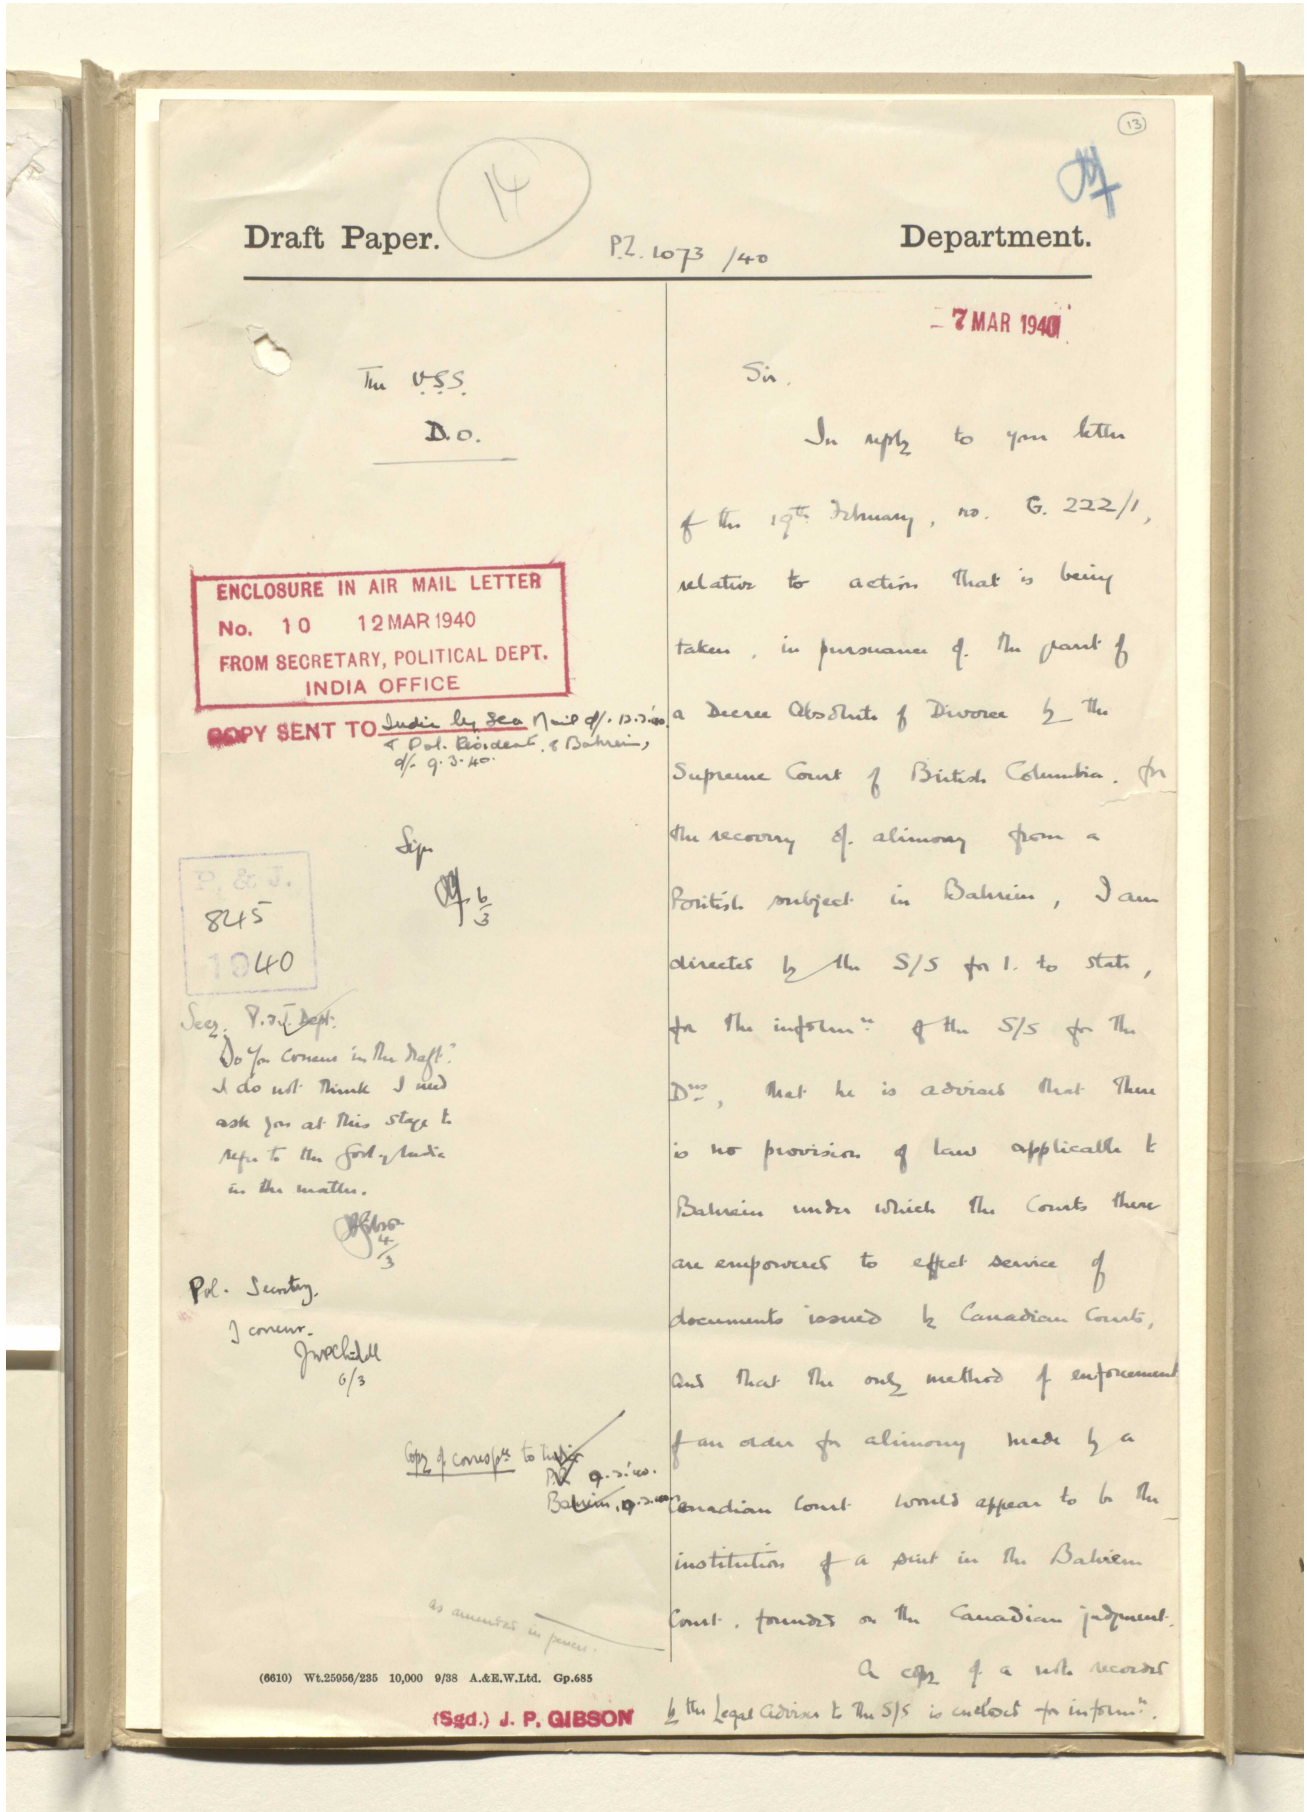 13
14
Draft Paper.
P.Z. 1073 /40
Department.
7 MAR 1940
The U.S.S.
D.O.
ENCLOSURE IN AIR MAIL LETTER
No. 10 12 MAR 1940
FROM SECRETARY, POLITICAL DEPT.
INDIA OFFICE
COPY SENT TO India by Sea Mail d/.
& Pol. Resident, & Bahrein,
d/. 9.3.40.
Sign
6/3
P. & J.
845
1940
Secy. P. & J. Dept.
Do you concur in the draft?
I do not think I need
ask you at this stage to
refer to the Govt of India
in the matter.
JPGibson
4/3
Pol. Secretary.
I concur.
6/3
Copy of corresp^ce to India
P.R. 9.3.40.
Bahrein, 9.3.40
as amended in pencil.
(6610) Wt.25956/235 10,000 9/38 A.&E.W.Ltd. Gp.685
(Sgd.) J. P. GIBSON
Sir,
In reply to your letter
of the 19th February, no. G. 222/1,
relative to action that is being
taken, in pursuance of the grant of
a Decree Absolute of Divorce by the
Supreme Court of British Columbia, for
the recovery of alimony from a
British subject in Bahrein, I am
directed by the S/S for I. to state,
for the inform^n of the S/S for the
D^ns, that he is advised that there
is no provision of law applicable to
Bahrein under which the Courts there
are empowered to effect service of
documents issued by Canadian Courts,
and that the only method of enforcement
of an order for alimony made by a
Canadian Court would appear to be the
institution of a suit in the Bahrein
Court, founded on the Canadian judgment.
A copy of a note recorded
by the Legal Adviser to the S/S is enclosed for inform^n.